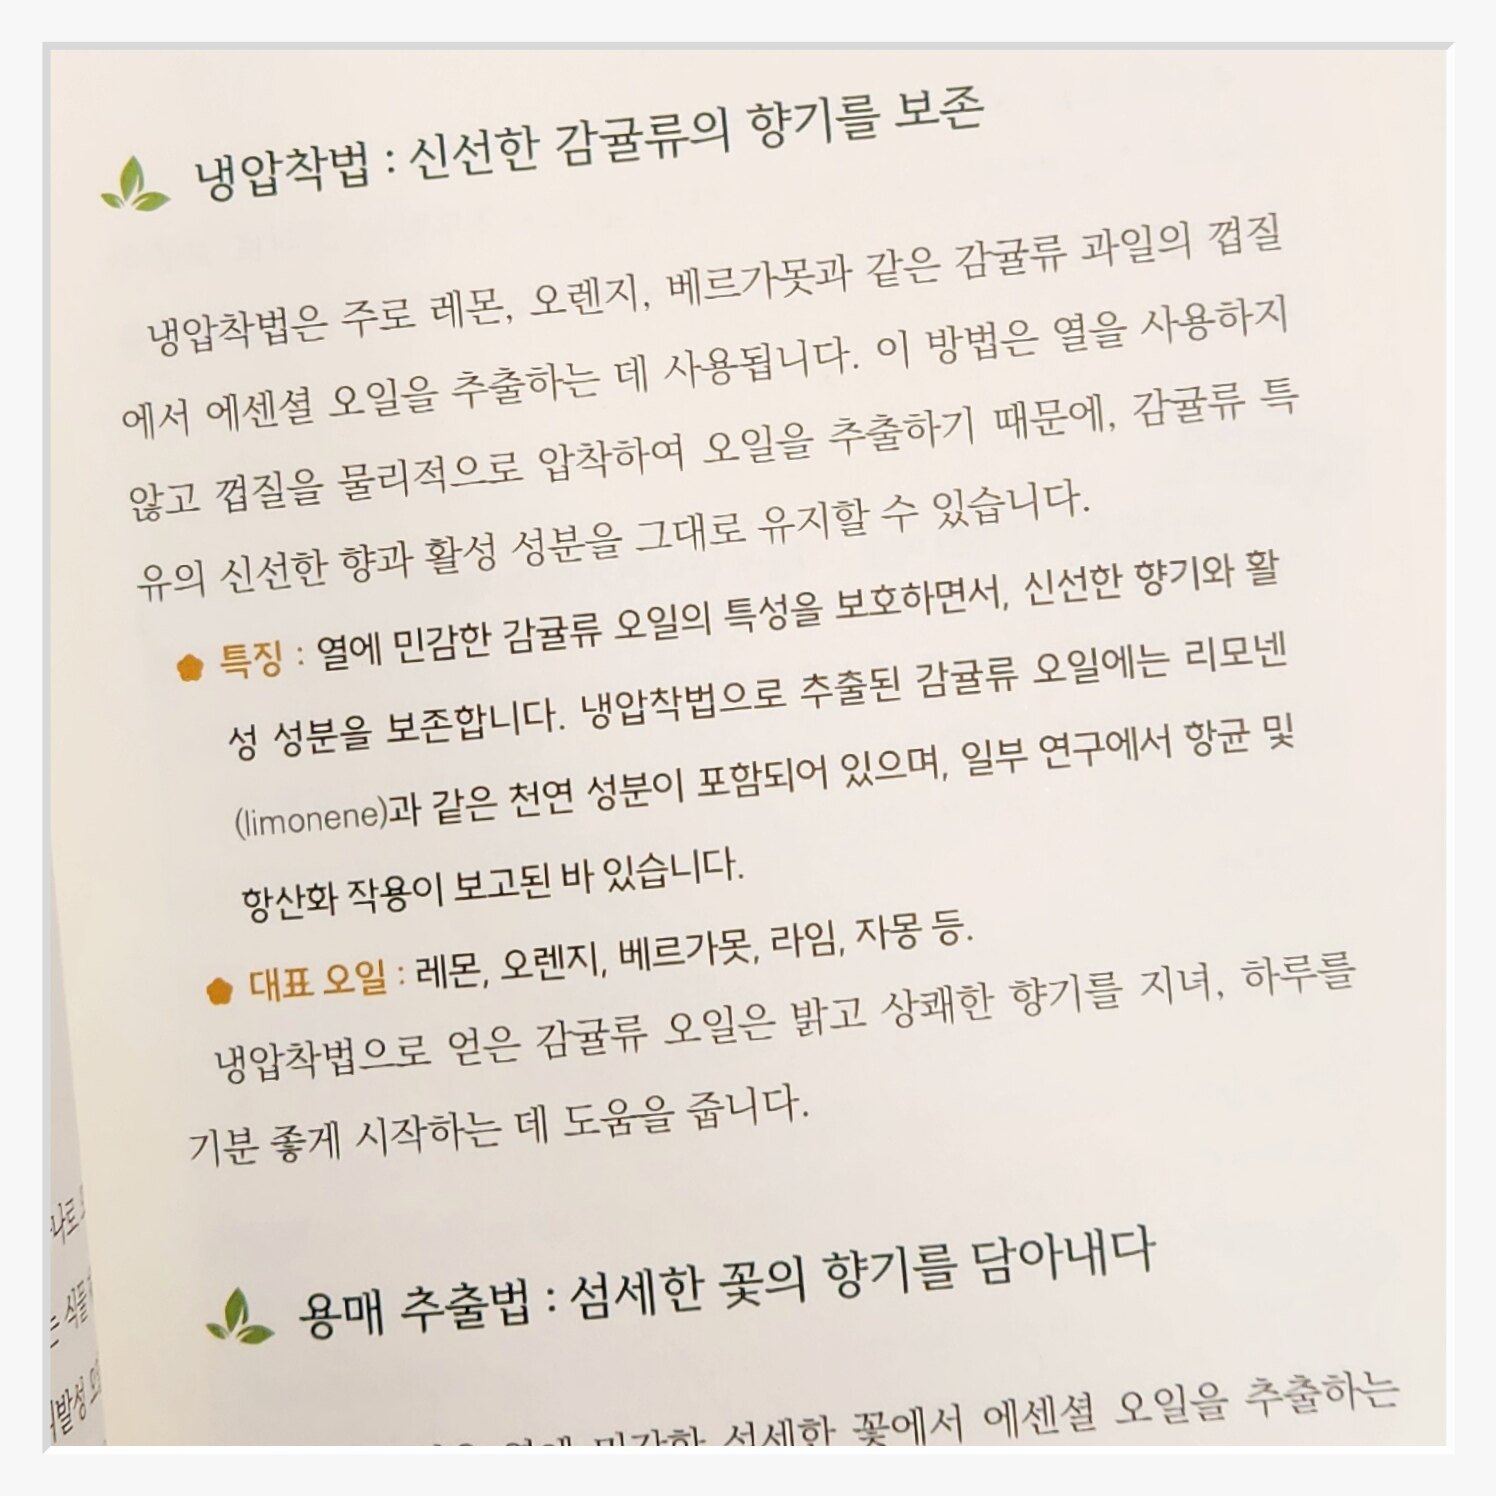 냉압착법 : 신선한 감귤류의 향기를 보존
냉압착법은 주로 레몬, 오렌지, 베르가못과 같은 감귤류 과일의 껍질
에서 에센셜 오일을 추출하는 데 사용됩니다. 이 방법은 열을 사용하지
않고 껍질을 물리적으로 압착하여 오일을 추출하기 때문에, 감귤류 특
유의 신선한 향과 활성 성분을 그대로 유지할 수 있습니다.
특징 : 열에 민감한 감귤류 오일의 특성을 보호하면서, 신선한 향기와 활
성 성분을 보존합니다. 냉압착법으로 추출된 감귤류 오일에는 리모넨
(limonene)과 같은 천연 성분이 포함되어 있으며, 일부 연구에서 항균 및
항산화 작용이 보고된 바 있습니다.
대표 오일 : 레몬, 오렌지, 베르가못, 라임, 자몽 등.
냉압착법으로 얻은 감귤류 오일은 밝고 상쾌한 향기를 지녀, 하루를
기분 좋게 시작하는 데 도움을 줍니다.
용매 추출법 : 섬세한 꽃의 향기를 담아내다
섬세한 꽃에서 에센셜 오일을 추출하는